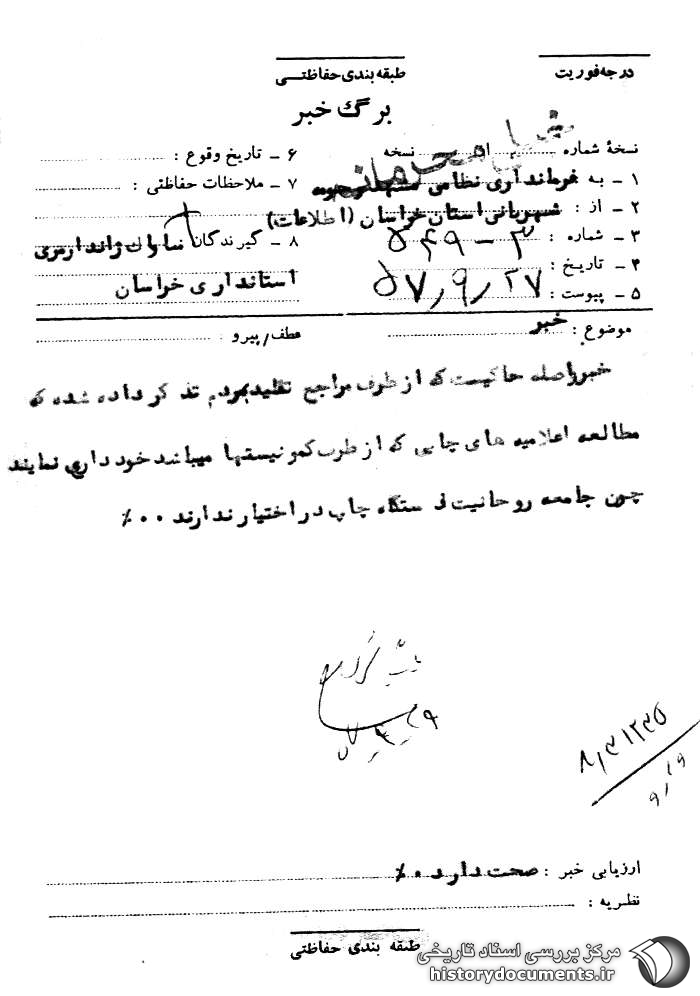 درجه فوریت
طبقه بندی حفاظتی
برگ خبر
نسخهٔ شماره از نسخه
۱ ـ به فرمانداری نظامی مشهد و حومه
۲ ـ از : شهربانی استان خراسان (اطلاعات)
۳ ـ شماره : ۳ - ۵۴۹
۴ ـ تاریخ : ۵۷/۹/۲۷
۵ ـ پیوست :
۶ ـ تاریخ وقوع :
۷ ـ ملاحظات حفاظتی :
۸ ـ گیرندگان ساواک ژاندارمری
استانداری خراسان
موضوع : خبر
عطف/پیرو :
خبر واصله حاکیست که از طرف مراجع تقلید بمردم تذکر داده شده که
مطالعه اعلامیه های چاپی که از طرف کمونیستها میباشد خودداری نمایند
چون جامعه روحانیت دستگاه چاپ در اختیار ندارند ۰۰٪
ارزیابی خبر : صحت دارد ۰٪
نظریه :
طبقه بندی حفاظتی
مرکز بررسی اسناد تاریخی
historydocuments.ir